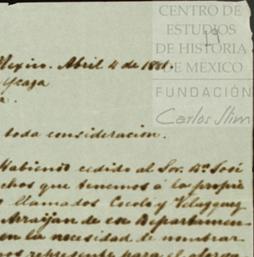 CENTRO DE
ESTUDIOS
DE HISTORIA
DE MEXICO
FUNDACIÓN
Carlos Slim
19
Mexico. Abril 4 de 1881.
toda consideracion.
Habiendo cedido al Sor. Dn. José
chos que tenemos á la propie
llamados Cocolo y Velazquez
Arraijan de ese Departamen
en la necesidad de nombrar
nos represente para el